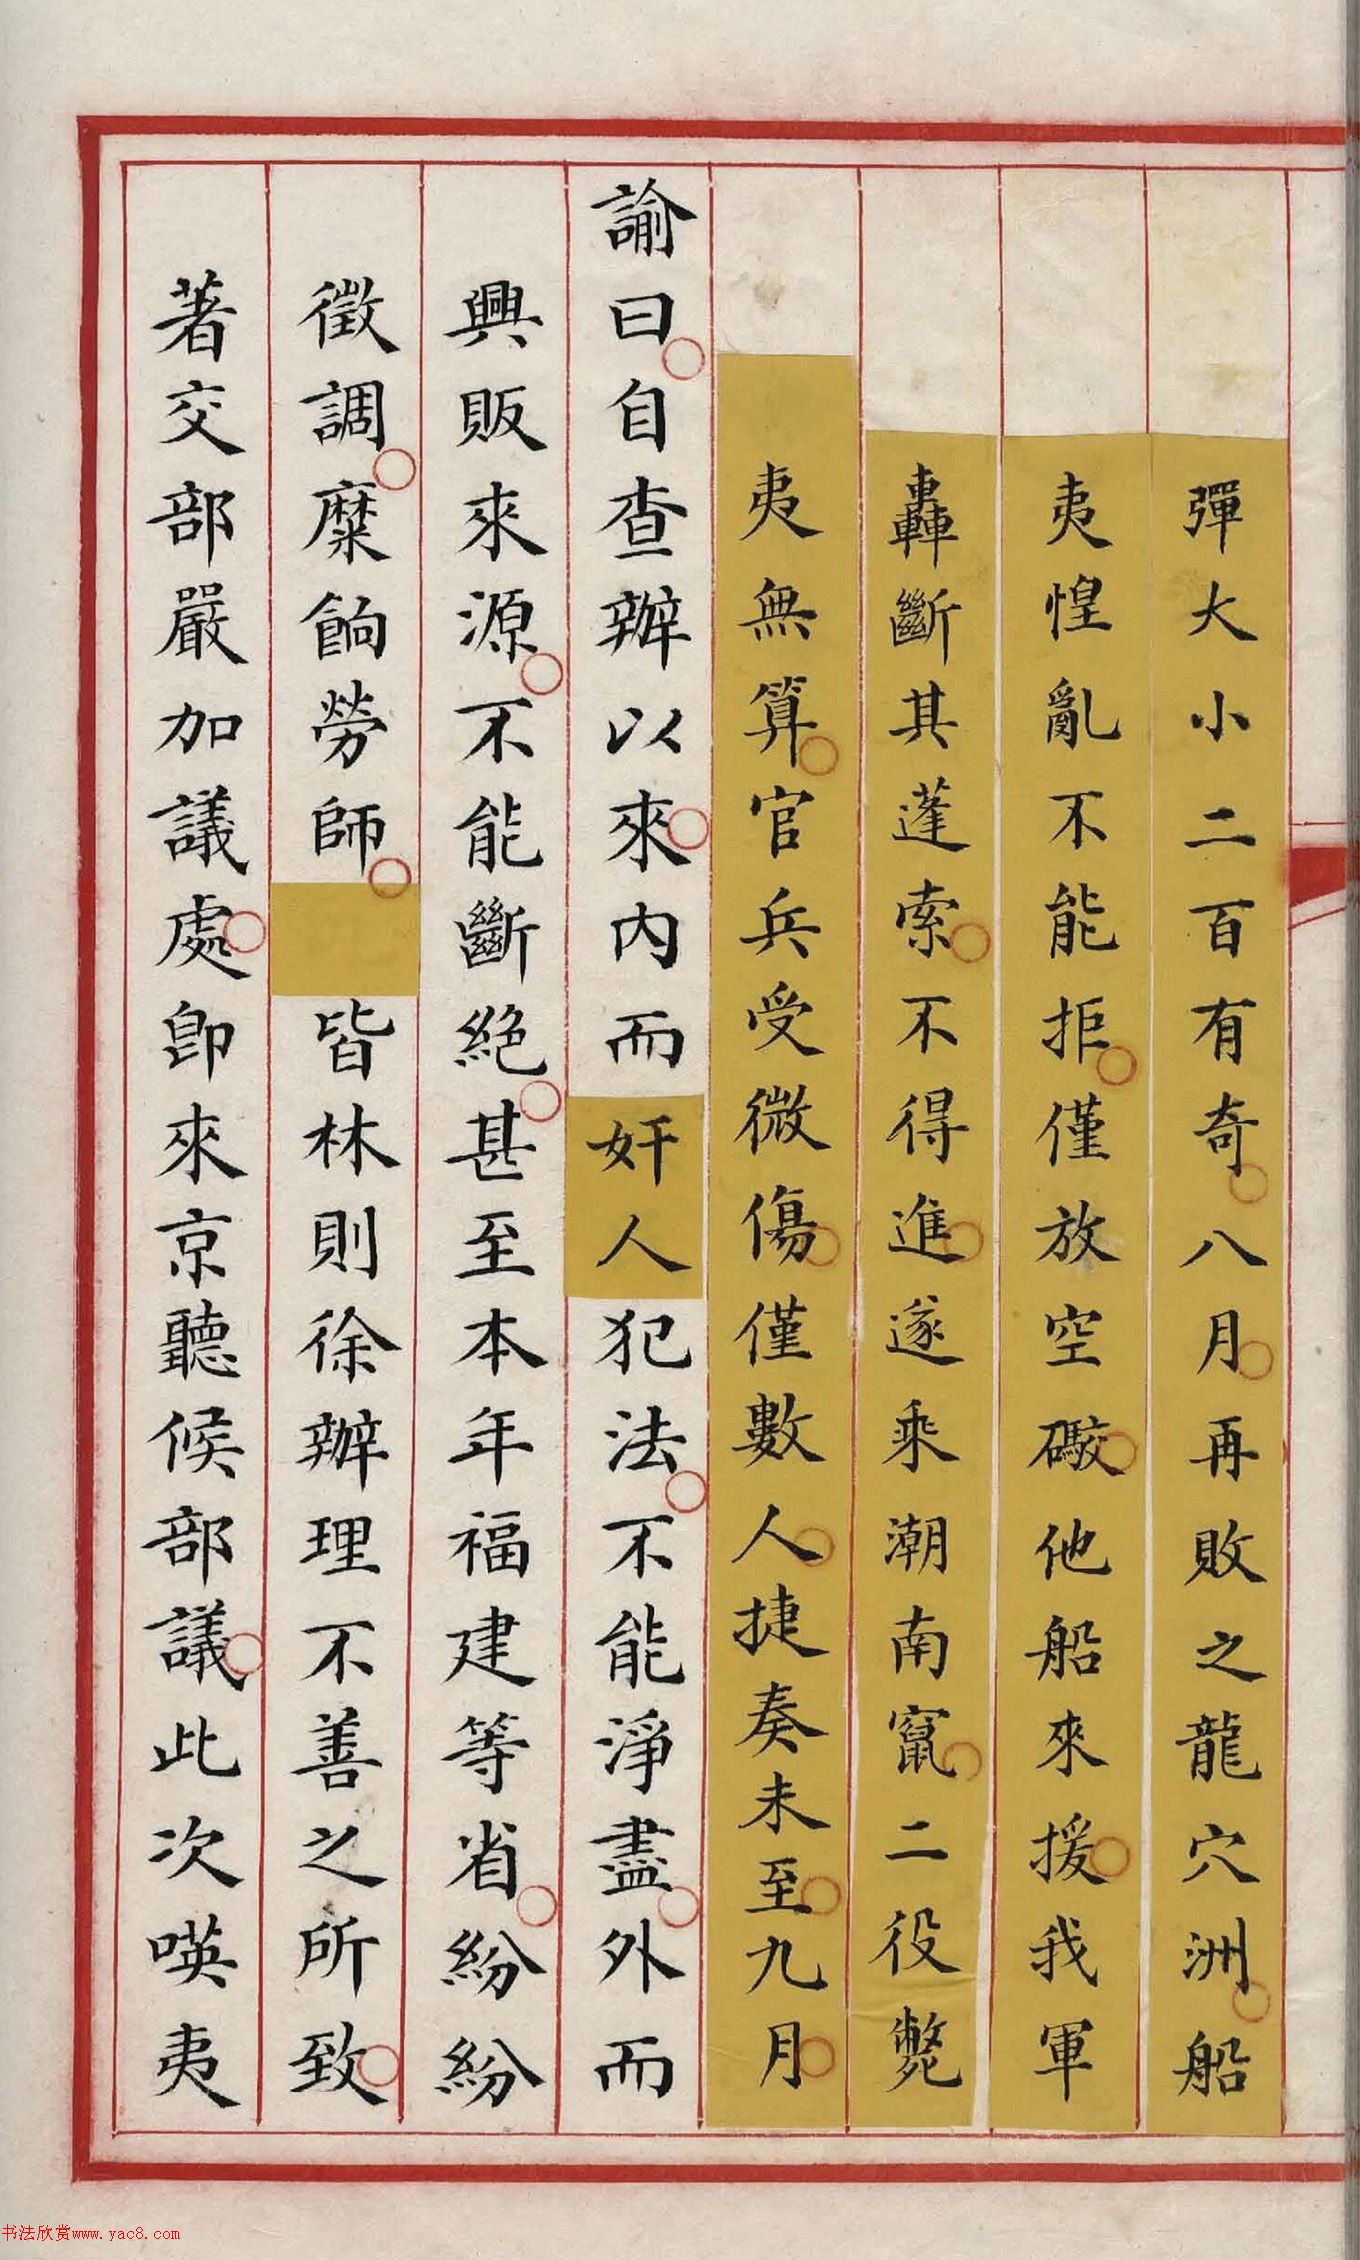 彈大小二百有奇八月再敗之龍穴洲船
夷惶亂不能拒僅放空礮他船來援我軍
轟斷其蓬索不得進遂乘潮南竄二役斃
夷無算官兵受微傷僅數人捷奏未至九月
諭曰自查辦以來內而奸人犯法不能淨盡外而
興販來源不能斷絕甚至本年福建等省紛紛
徵調糜餉勞師皆林則徐辦理不善之所致
著交部嚴加議處卽來京聽候部議此次唊夷
书法欣赏www.yac8.com